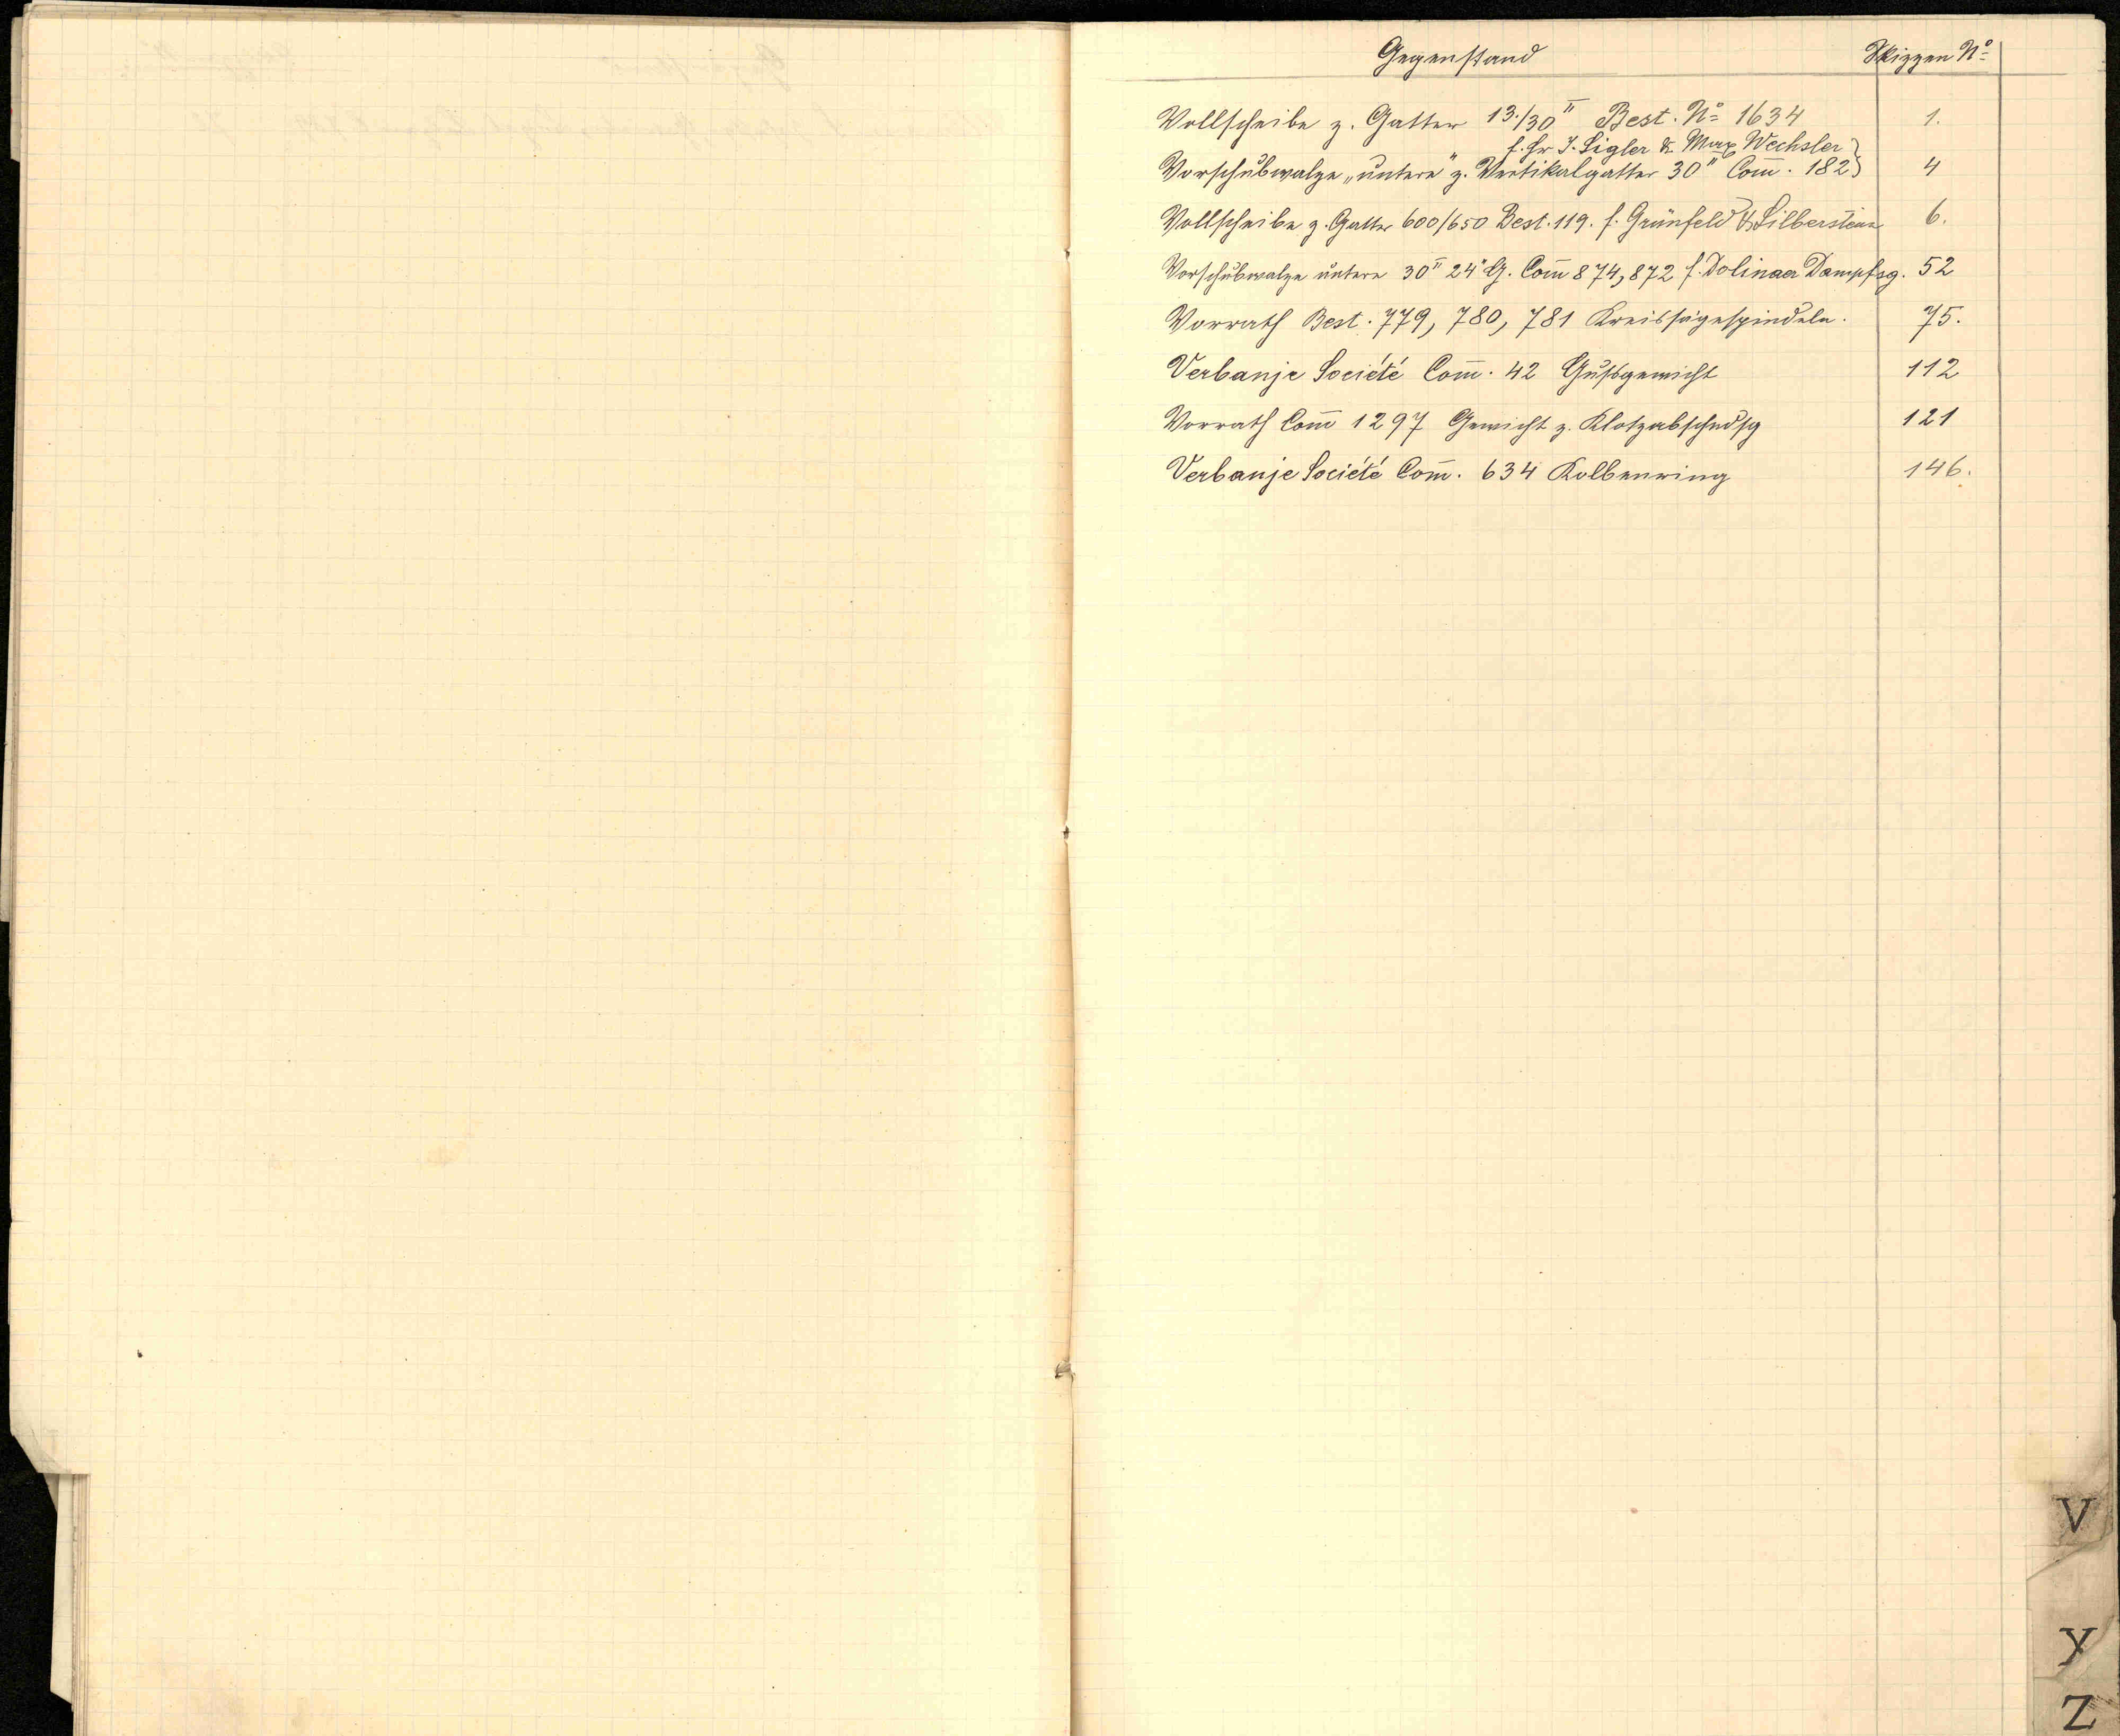 Gegenstand Skizzen Nº
Vollscheibe z. Gatter 13/30" Best. Nº 1634 1.
f. Hr J. Sigler & Max Wechsler
Vorschubwalze „untere" z. Vertikalgatter 30" Com̅. 182 4
Vollscheibe z. Gatter 600/650 Best. 119. f. Grünfeld & Silberstein 6.
Vorschubwalze untere 30" 24" G. Com̅ 874, 872 f. Dolinaer Dampfsg. 52
Vorrath Best. 779, 780, 781 Kreissägespindeln. 75.
Verbanje Société Com̅. 42 Gußgewicht 112
Vorrath Com̅ 1297 Gewicht z. Klotzabschndsg 121
Verbanje Société Com̅. 634 Kolbenring 146.
V
Y
Z